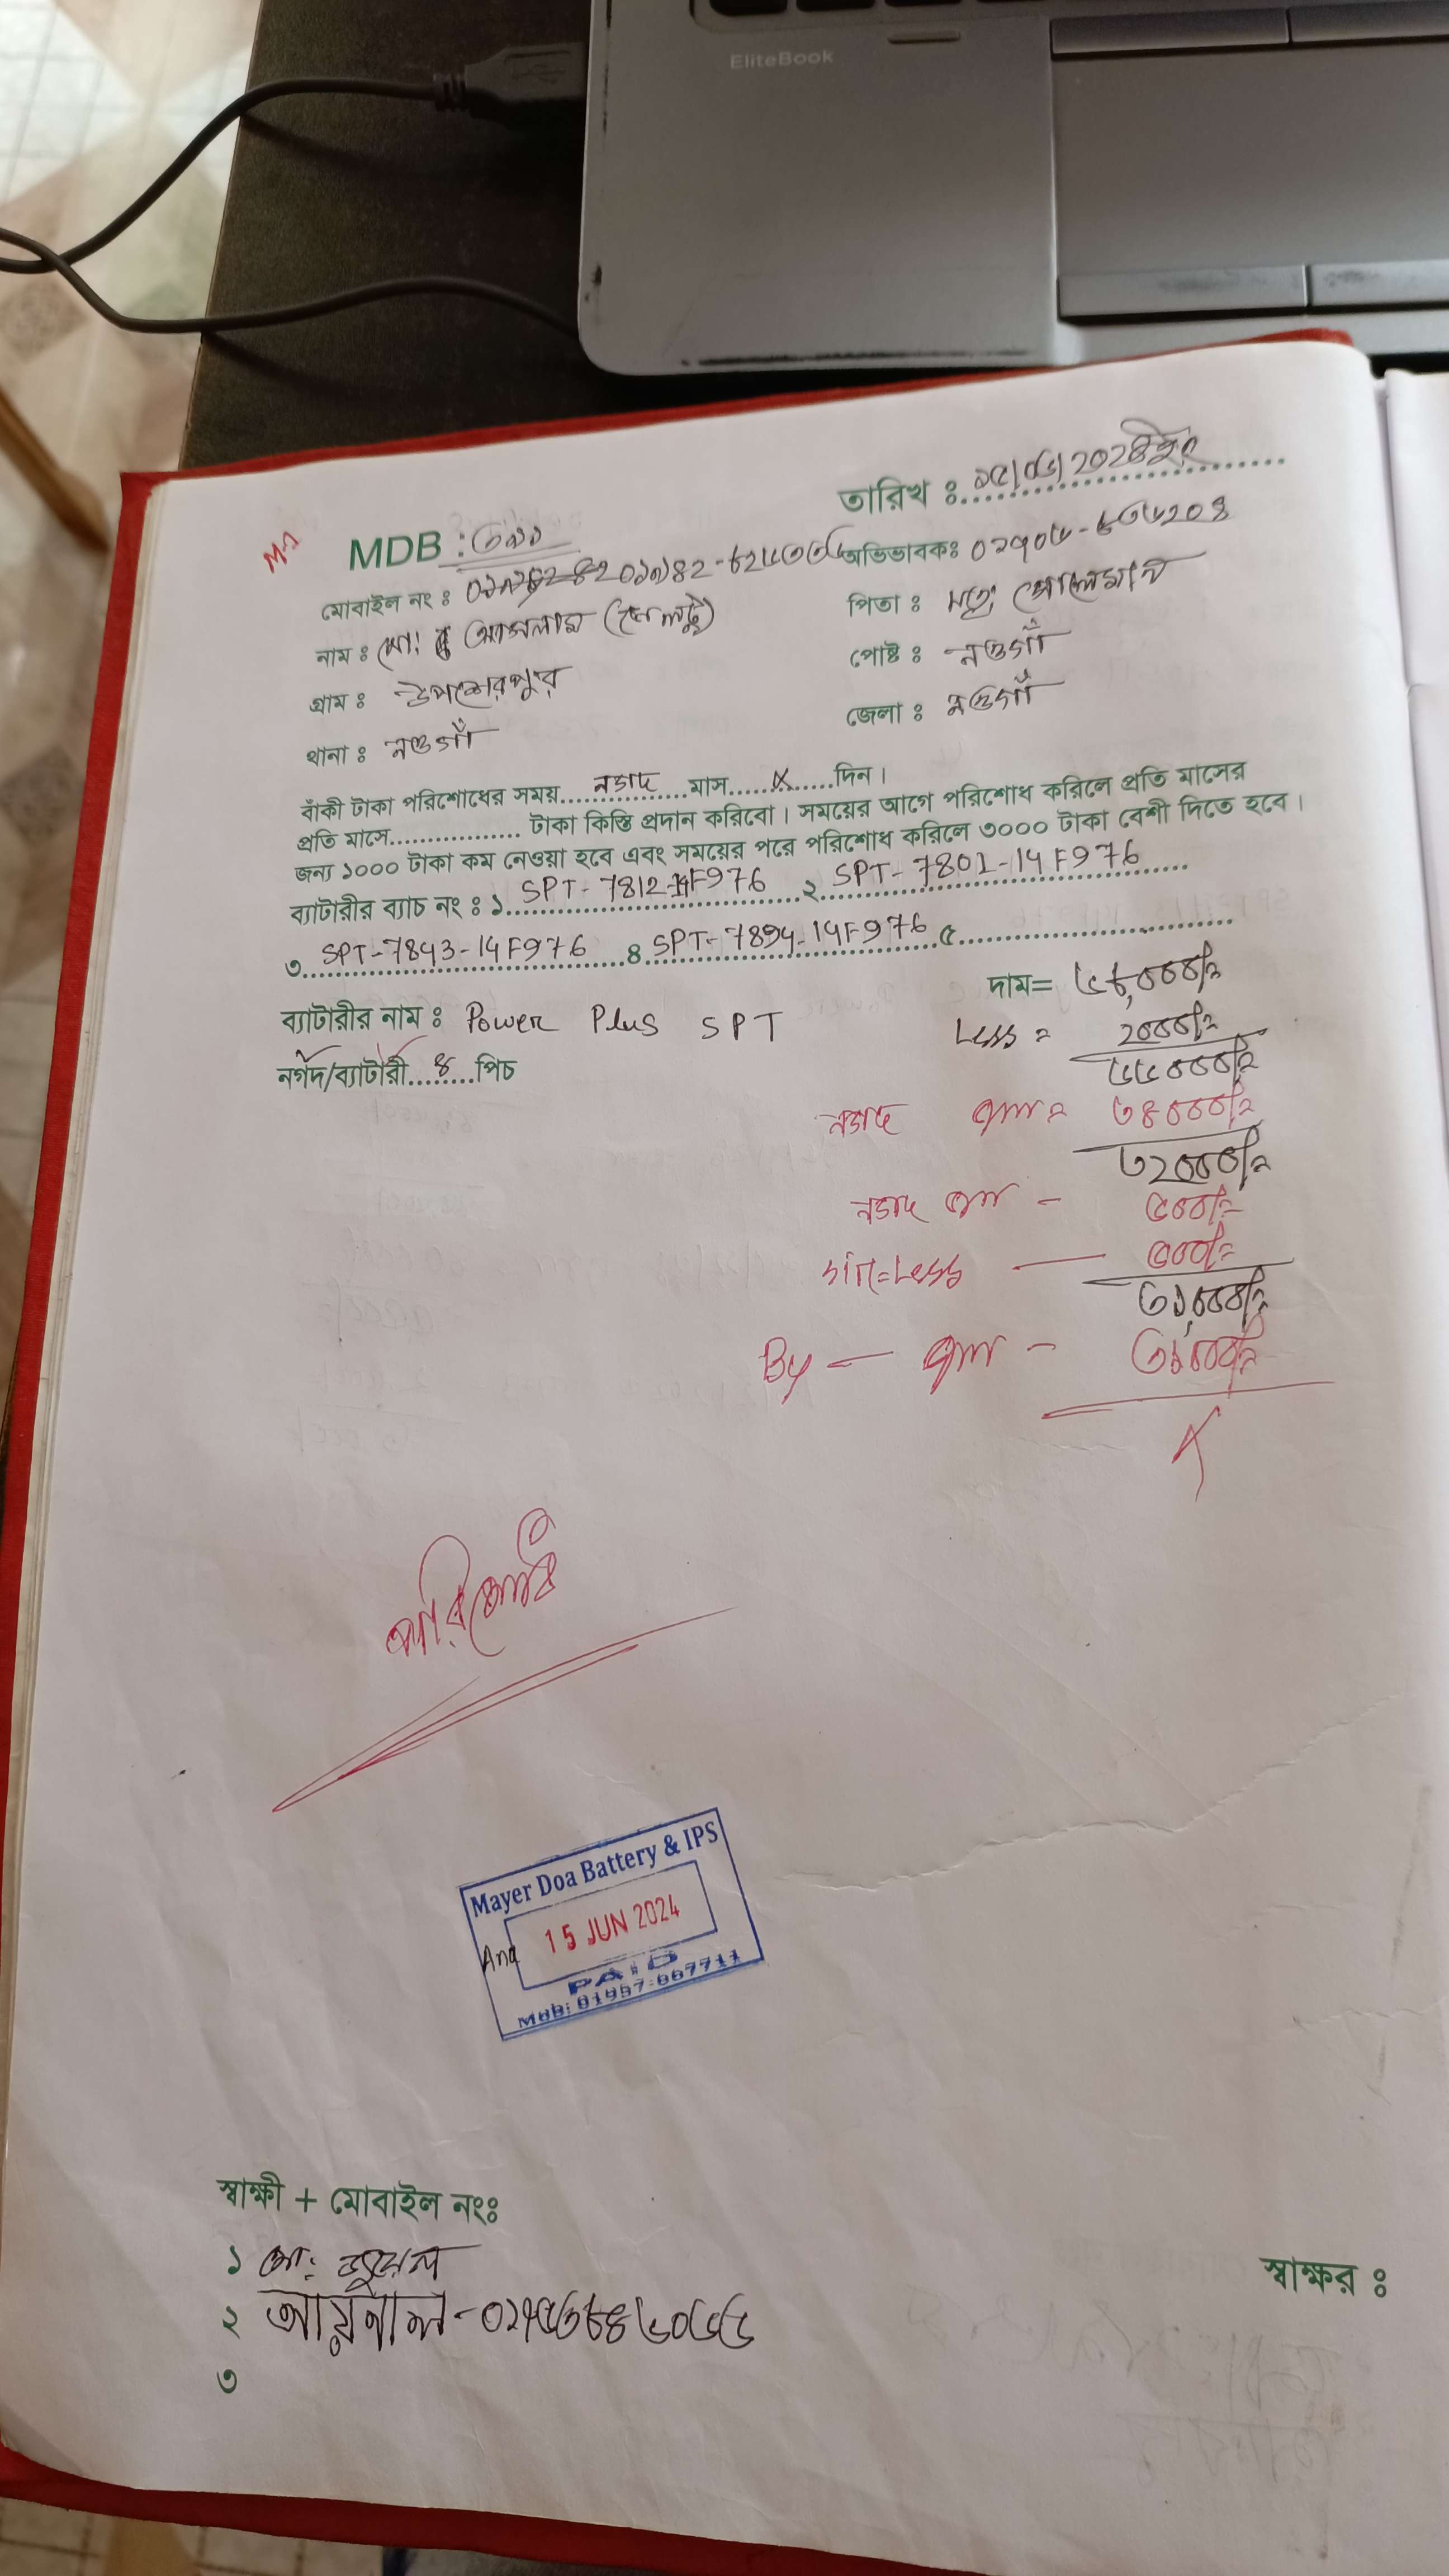 EliteBook
তারিখ ঃ ১৫/০৬/২০২৪ইং
M-১
MDB : ৩৯৯
মোবাইল নং ঃ
অভিভাবকঃ
নাম ঃ মোঃ আসলাম
পিতা ঃ মৃতঃ সোলেমান
গ্রাম ঃ উপশেরপুর
পোষ্ট ঃ নওগাঁ
থানা ঃ নওগাঁ
জেলা ঃ নওগাঁ
বাঁকী টাকা পরিশোধের সময়......নগদ......মাস......X......দিন।
প্রতি মাসে.................. টাকা কিস্তি প্রদান করিবো। সময়ের আগে পরিশোধ করিলে প্রতি মাসের
জন্য ১০০০ টাকা কম নেওয়া হবে এবং সময়ের পরে পরিশোধ করিলে ৩০০০ টাকা বেশী দিতে হবে।
ব্যাটারীর ব্যাচ নং ঃ ১. SPT-7812-14F976 ২. SPT-7801-14F976
৩. SPT-7843-14F976 ৪. SPT-7894-14F976 ৫.
দাম= ৬৮,০০০/=
ব্যাটারীর নাম ঃ Power Plus SPT
Less = ২০০০/=
নগদ/ব্যাটারী....৪....পিচ
৬৬০০০/=
নগদ জমা= ৩৪০০০/=
৩২০০০/=
নগদ জমা - ৫০০/=
Less — ৫০০/=
৩১,০০০/=
By — জমা - ৩১০০০/=
X
পরিশোধ
Mayer Doa Battery & IPS
15 JUN 2024
PAID
Mob: 01957-667711
স্বাক্ষী + মোবাইল নংঃ
১ মো: জুয়েল
স্বাক্ষর ঃ
২ আয়নাল
৩